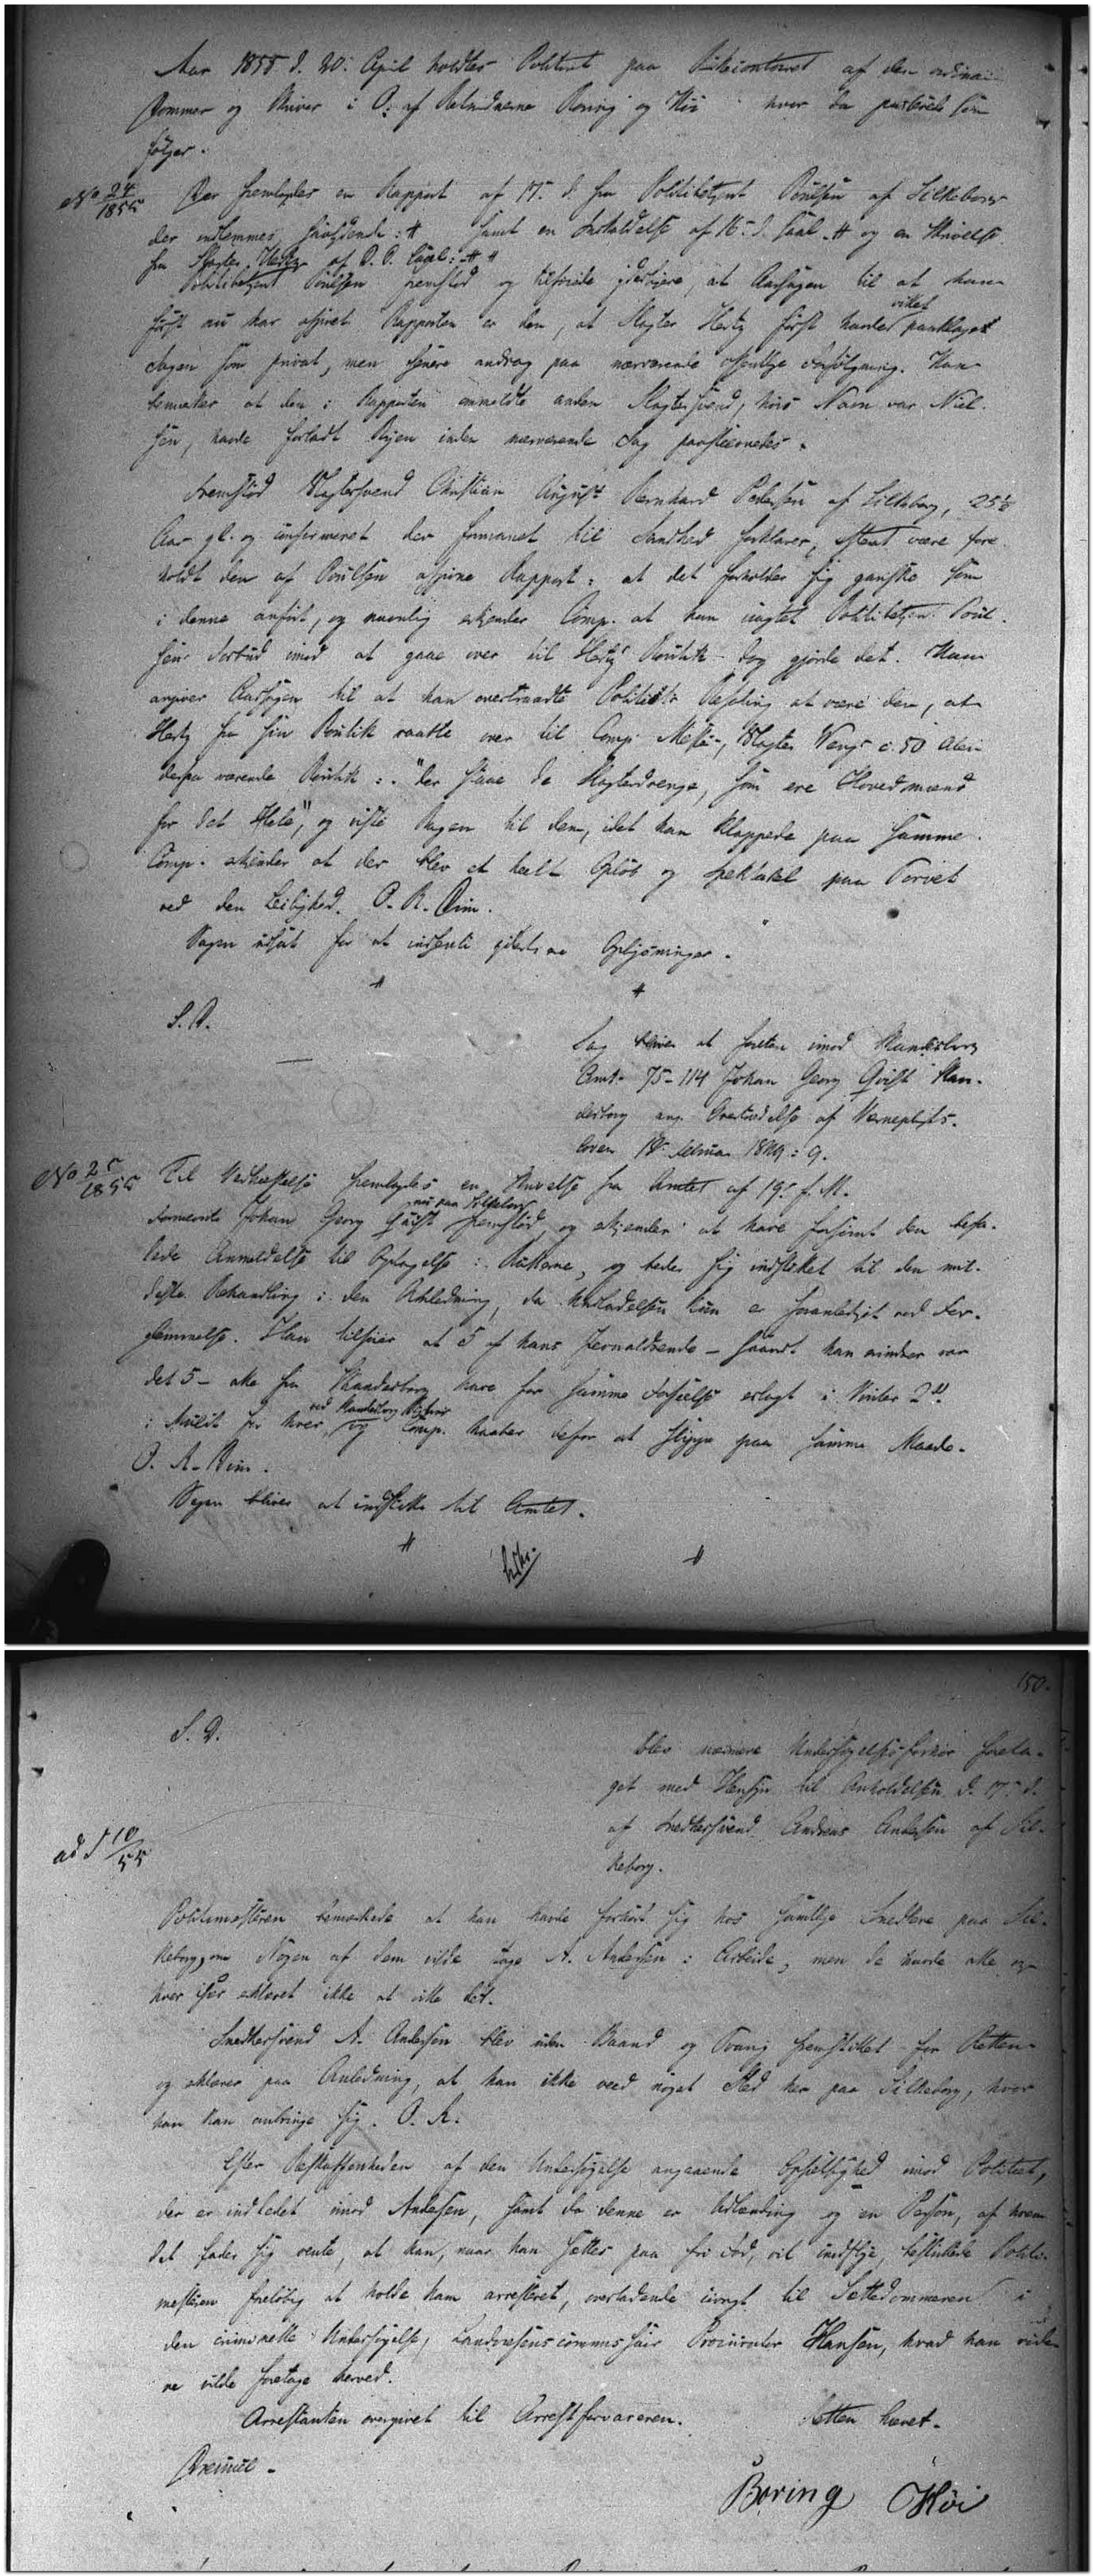 Aar 1855 d. 20. April holdtes Politiret paa Birkecontoiret af den ordinai
Dommer og Skriver i O: af Retsvidnerne Boring og Høi hvor da passerede som
følger.
No 24/1855 Der fremlagdes en Rapport af 17. d. fra Politibetjent Poulsen af Silkeborg
der indlemmes saalydende: # samt en Anholdelse af 16. d. saal. # og en Skrivelse
fra Slagter Hertz af D. D. saal: #
Politibetjent Poulsen fremstod og tilføiede yderligere, at Aarsagen til at han
først nu har afgivet Rapporten er den, at Slagter Hertz først havde villet paaklaget
Sagen som privat, men senere androg paa nærværende offentlige Forfølgning. Han
bemærker at den i Rapporten ommeldte anden Slagtersvend, hvis Navn var Niel-
sen, havde forladt Byen inden nærværende Sag paastævnedes.
Fremstod Slagtersvend Christian August Bernhard Pedersen af Silkeborg, 25½
Aar gl. og confirmeret der formanet til Sandhed forklarer, efterat være fore-
holdt den af Poulsen afgivne Rapport: at det forholder sig ganske som
i denne anført, og navnlig erkjender Comp. at han uagtet Politibetjen. Poul-
sens Forbud imod at gaae over til Hertz' Boutik dog gjorde det. Han
angiver Aarsagen til at han overtraadte Politiets Befaling at være den, at
Hertz fra sin Boutik raabte over til Comp. Mester, Slagter Wengs c. 50 Alen
derfra værende Boutik: "der staae de Slagterdrenge, som ere Hovedmænd
for det Hele", og viste Bagen til dem, idet han klappede paa samme.
Comp. erkjender at der blev et heelt Opløb og Spektakel paa Torvet
ved den Leilighed. O. R. Dim.
Sagen udsat for at indhente yderligere Oplysninger.
# #
S. D.
Sag bliver at foretage imod Skanderborg
Amt 75-114 Johan Georg Qvist Skan-
derborg ang. Overtrædelse af Værnepligts-
loven 12. Februar 1849 § 9.
No 25/1855 Til Iværksættelse fremlagdes en Skrivelse fra Amtet af 19. f. M.
Fornævnte Johan Georg Qvist nu paa Silkeborg fremstod og erkjender at have forsømt den befa-
lede Anmeldelse til Optagelse i Rullerne, og beder sig indstillet til den mil-
deste Behandling i den Anledning, da Undladelsen kun er foranlediget ved For-
glemmelse. Han tilføier at 5 af hans Jevnaldrende - saavidt han minder var
det 5 - alle fra Skanderborg have for samme Forseelse erlagt i Vinter 2 rd
i Mulct for hver, ved Skanderborg Birkeret og Comp. haaber derfor at slippe paa samme Maade.
O. A. Dim.
Sagen bliver at indstille til Amtet.
# #
150.
S. D.
blev nærmere Undersøgelsesforhør foreta-
get med Hensyn til Anholdelsen d. 17. d.
af Snedkersvend Andreas Andersen af Sil-
keborg.
ad S 10/55
Politimesteren bemærkede at han havde forhørt sig hos samtlige Snedkere paa Sil-
keborg, om Nogen af dem vilde tage A. Andersen i Arbeide, men de havde alle og
hver især erklæret ikke at ville det.
Snedkersvend A. Andersen blev uden Baand og Tvang fremstillet for Retten
og erklærer paa Anledning, at han ikke veed noget Sted her paa Silkeborg, hvor
han kan anbringe sig. O. R.
Efter Beskaffenheden af den Undersøgelse angaaende Opsætsighed imod Politiet,
der er indledet imod Andersen, samt da denne er Udlænding og en Person, af hvem
det lader sig vente, at han, naar han sættes paa fri Fod, vil undflye, besluttede Politi-
mesteren foreløbig at holde ham arresteret, overladende iøvrigt til Sættedommeren i
den criminelle Undersøgelse, Landvæsenscommissair Procurator Hansen, hvad han vide-
re vilde foretage herved.
Arrestanten overgivet til Arrestforvareren. Retten hævet.
Drewsen
Boring Høi